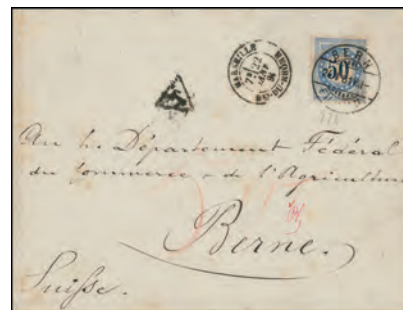 MARSEILLE
BOUCHES-DU-RHONE
22
BERN
50
T
Au h. Département Fédéral
du Commerce & de l'Agriculture
Berne.
Suisse.